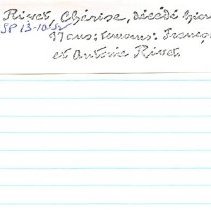 Rivet, Chérise, décédé hier
SP 13-10
47 ans; témoins: Franço
et Antoine Rivet.